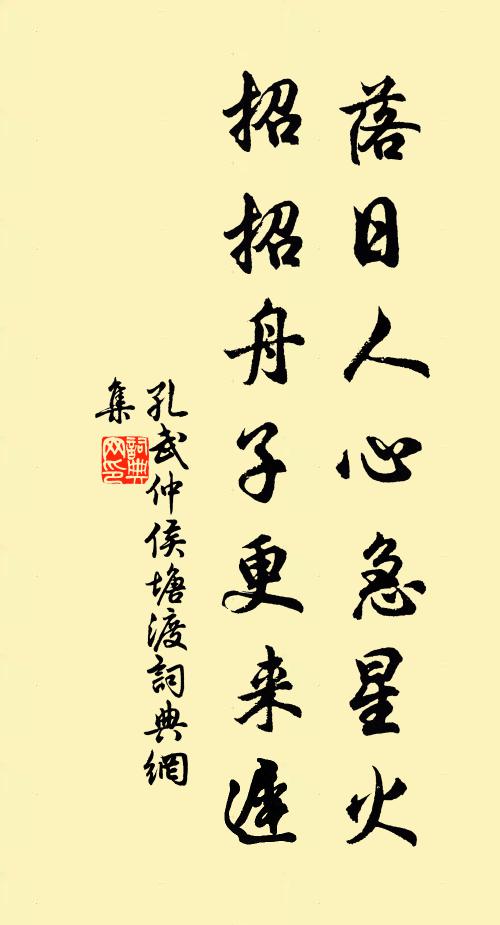 落日人心急星火
招招舟子更来遲
孔武仲侯塘渡詞典網
集
詞典网印